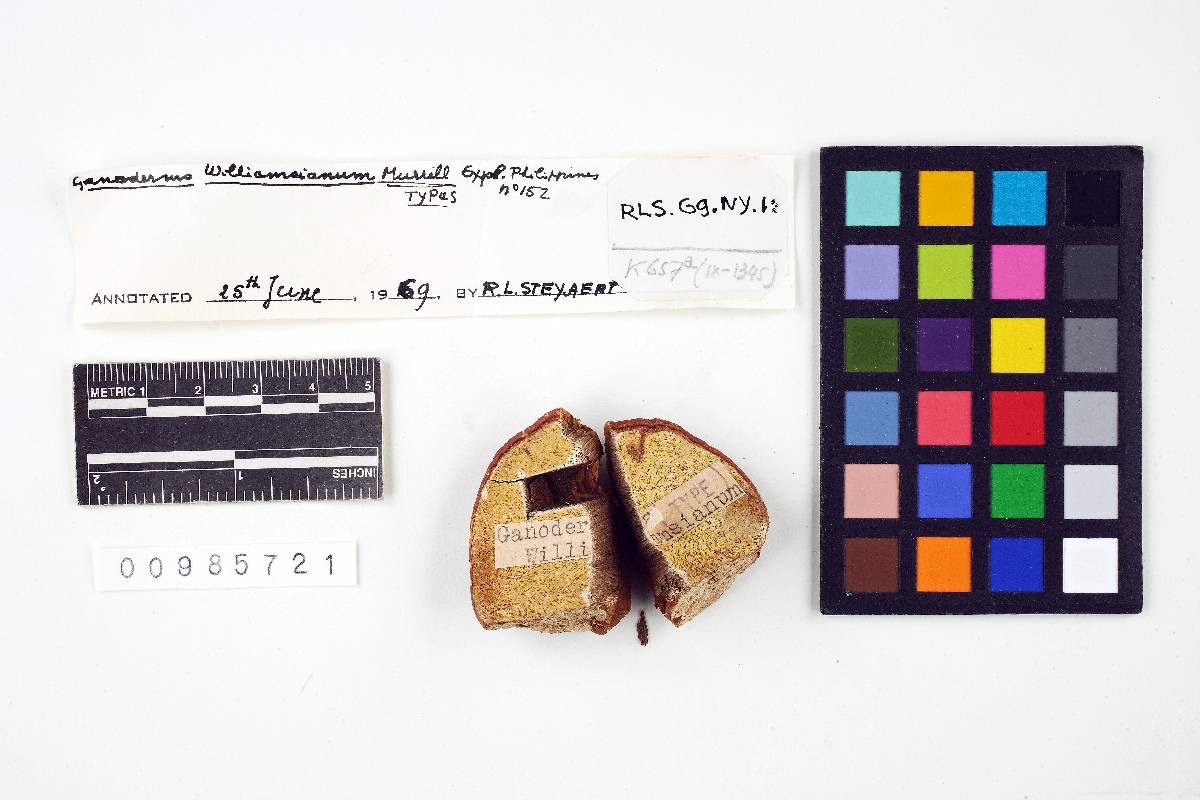 Ganoderma Williamsianum Murrill Expl. Philippines
TYPES nº 152
RLS.Gg.NY.12
K657a (IX-1345)
ANNOTATED 25th June, 1969, BY R.L.STEYAERT
METRIC 1 2 3 4 5
2 1 INCHES
Ganoder
Willi
TYPE
nsianum
00985721